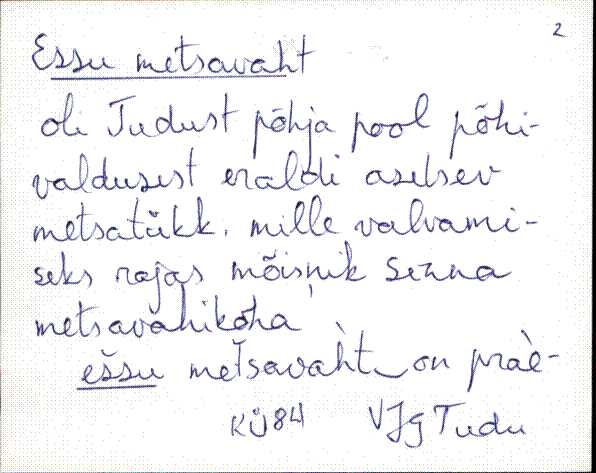 2
Essu metsavaht
oli Tudust põhja pool põhi-
valdusest eraldi asetsev
metsatükk, mille valvami-
seks rajas mõisnik sinna
metsavahikoha
eššu metsavah̀t on præ̀-
KÜ84 VJg Tudu